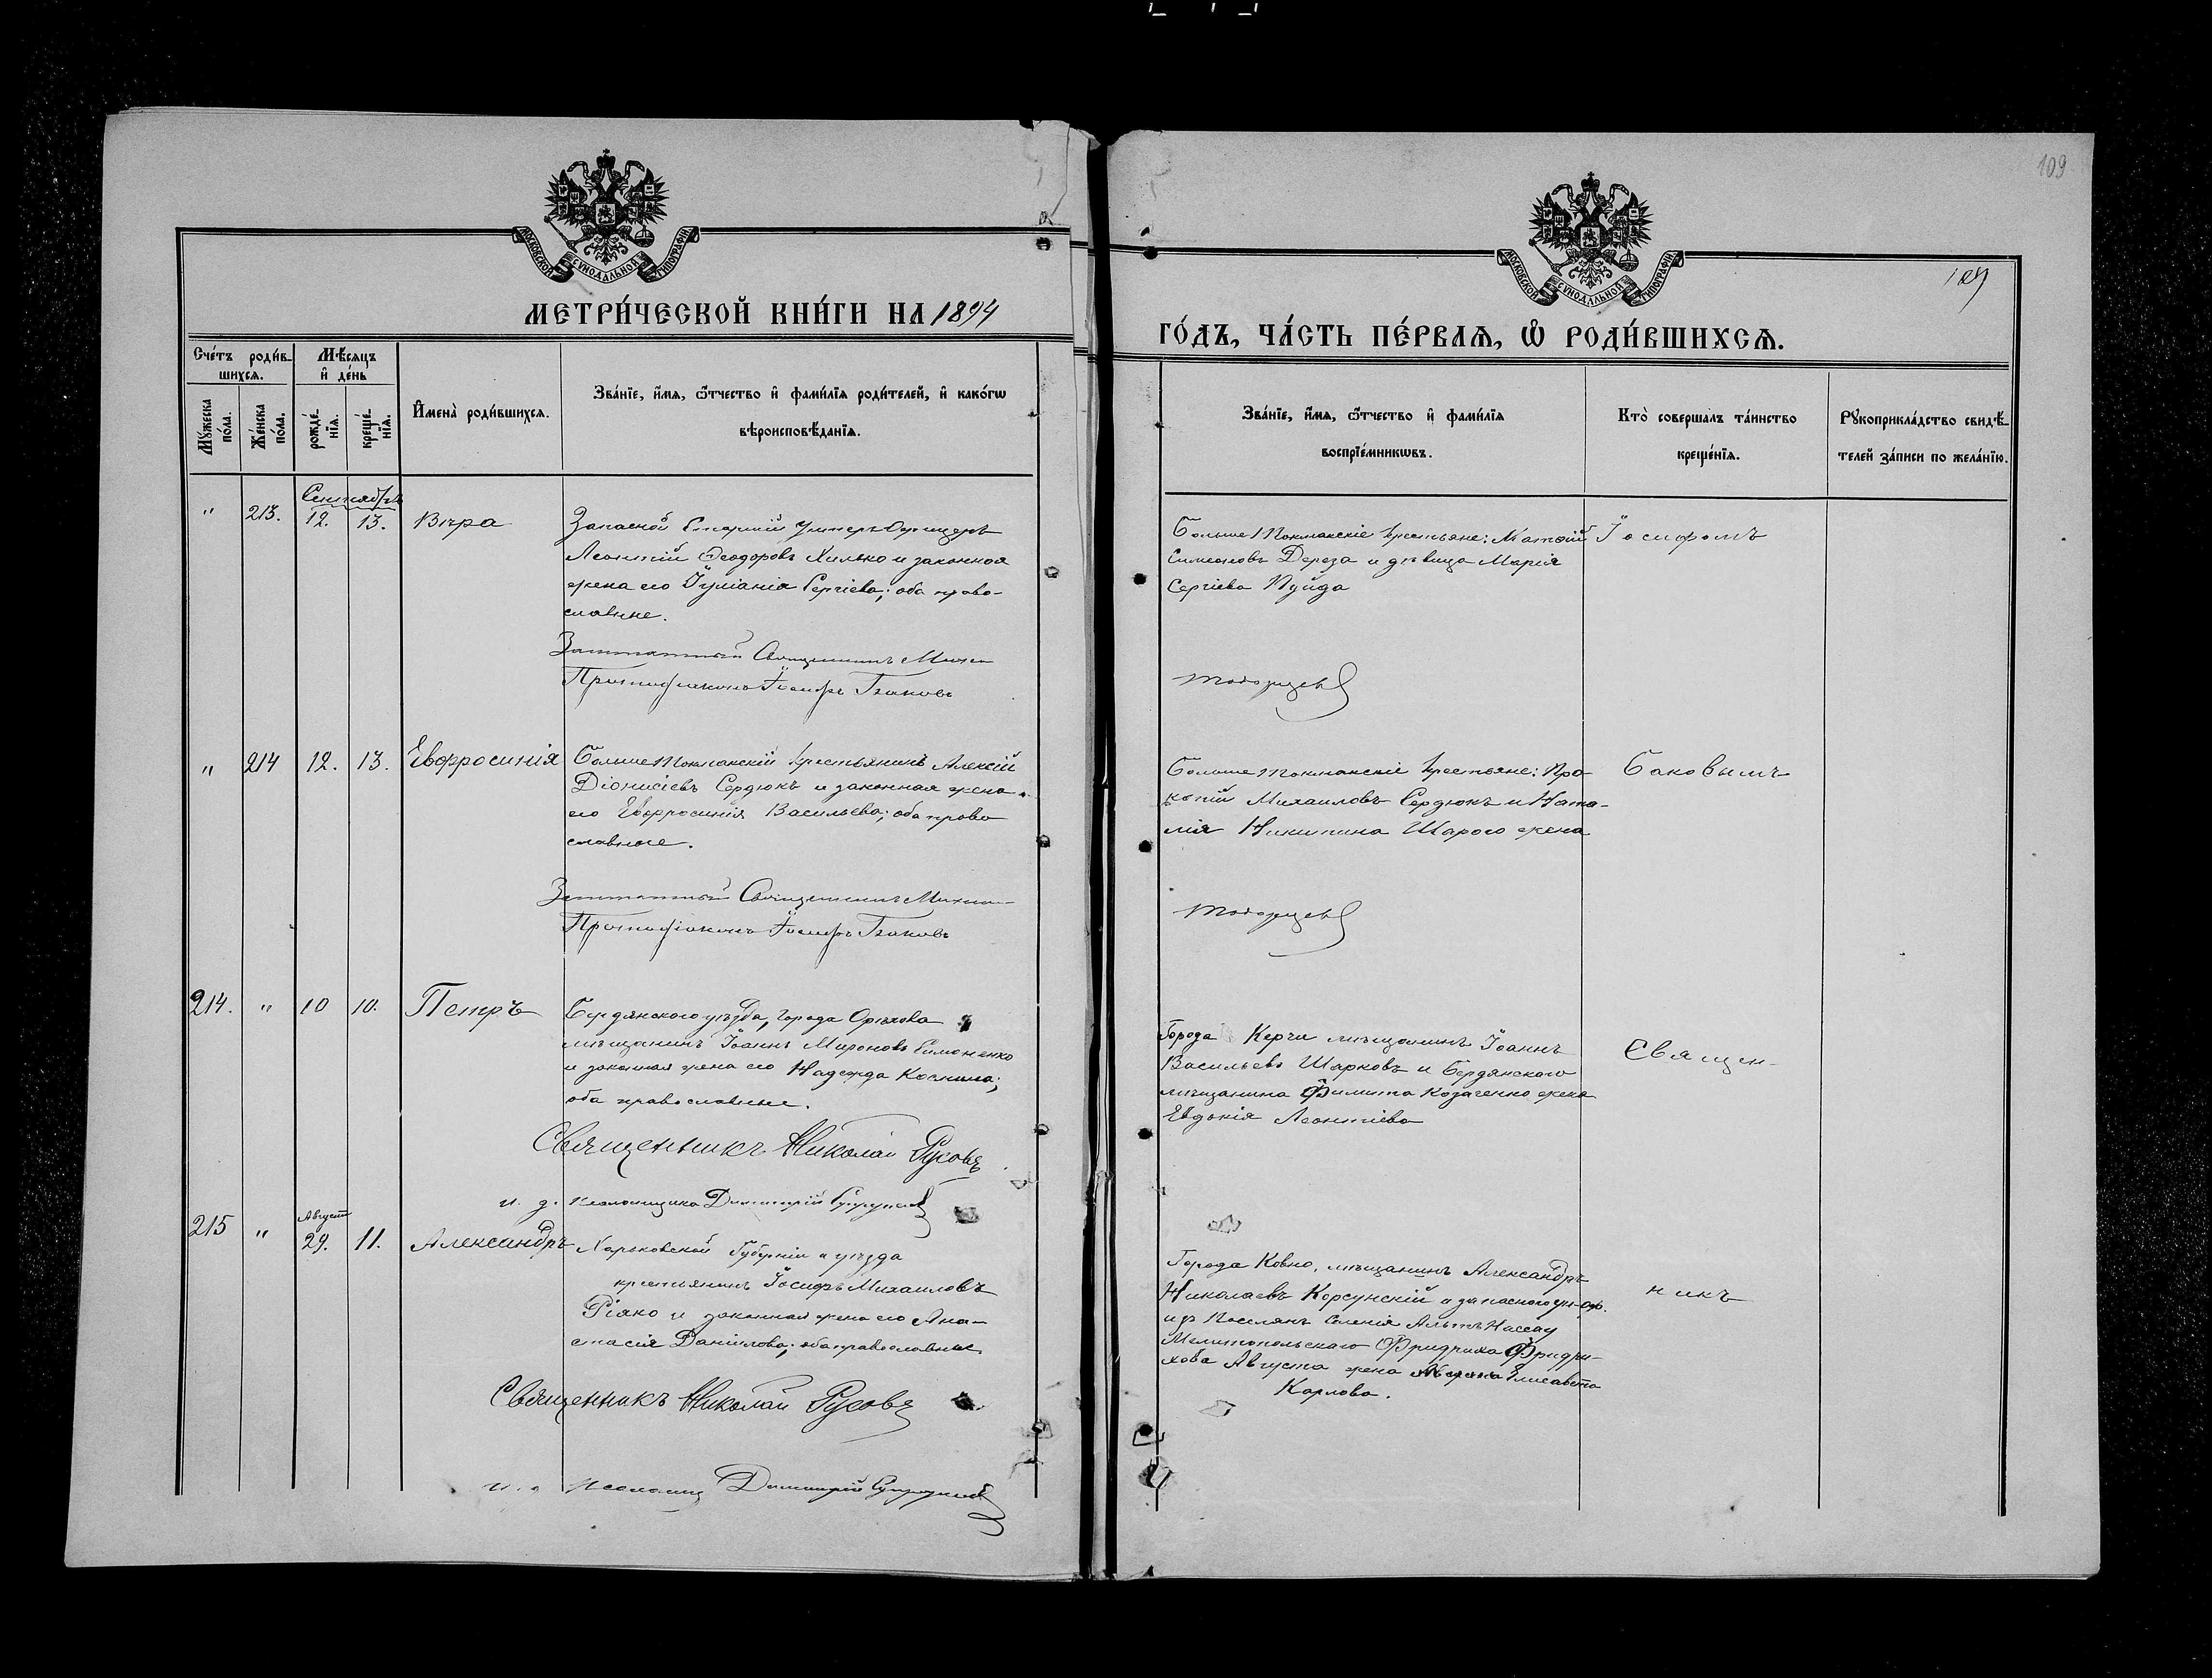 109
109
МОСКОВСКОЙ СѴНОДАЛЬНОЙ ТИПОГРАФІИ
МЕТРИ́ЧЕСКОЙ КНИ́ГИ НА 1894
Сче́тъ роди́в-
шихсѧ.
Мѣ́сѧцъ
и҆ де́нь
Мꙋ́жеска по́ла.
Же́нска по́ла.
рожде́-нїѧ.
креще́-нїѧ.
И҆мена̀ роди́вшихсѧ.
Зва́нїе, и҆́мѧ, ѻ҆́тчество и҆ фами́лїѧ роди́телей, и҆ како́гѡ
вѣроисповѣ́данїѧ.
Сентябрь
" 213. 12. 13. Вѣра
Запасной Старшій Унтеръ Офицеръ
Леонтій Ѳеодоровъ Хилько и законная
жена его Іуліанія Сергіева; оба право-
славные.
Заштатный Священникъ
Протодіаконъ Іосифъ Баковъ
" 214 12. 13. Евфросинія
Больше Токмакскій крестьянинъ Алексій
Діонисіевъ Сердюкъ и законная жена
его Евфросинія Васильева; оба право
славные.
Заштатный Священникъ
Протодіаконъ Іосифъ Баковъ
214. " 10 10. Петръ
Бердянского уѣзда, города Орѣхова
мѣщанинъ Іоаннъ Мироновъ Симоненко
и законная жена его Надежда Косьмина;
оба православные.
Священникъ Николай Русовъ
и. д. псаломщика Димитрій
Августъ
215 " 29. 11. Александръ
Харьковской Губерніи и уѣзда
крестьянинъ Іосифъ Михаиловъ
Ріяко и законная жена его Ана-
стасія Даніилова; оба православные
Священникъ Николай Русовъ
и. д. псаломщ Димитрій
МОСКОВСКОЙ СѴНОДАЛЬНОЙ ТИПОГРАФІИ
ГО́ДЪ, ЧА́СТЬ ПЕ́РВАѦ, Ѡ҆ РОДИ́ВШИХСѦ.
Зва́нїе, и҆́мѧ, ѻ҆́тчество и҆ фами́лїѧ
воспрїе́мникѡвъ.
Кто̀ совершалъ та́инство
креще́нїѧ.
Рꙋкоприкла́дство свидѣ́-
телей за́писи по жела́нїю.
Больше Токмакскіе крестьяне: Матѳій
Симеоновъ Дереза и дѣвица Марія
Сергіева Пуйда
Іосифомъ
Больше Токмакскіе крестьяне: Про-
копій Михаиловъ Сердюкъ и Ната-
лія Никитина Шарого жена
Баковымъ
Города Керчи мѣщанинъ Іоаннъ
Васильевъ Шарковъ и Бердянского
мѣщанина Филиппа Козаченко жена
Евдокія Леонтіева
Священ-
Города Ковно, мѣщанинъ Александръ
Николаевъ Корсунскій и запасного ун-оф.
изъ Поселянъ Селенія Альтъ Нассау
Мелитопольского Фридриха Фридри-
хова Августа жена Елисавета
Карлова.
никъ